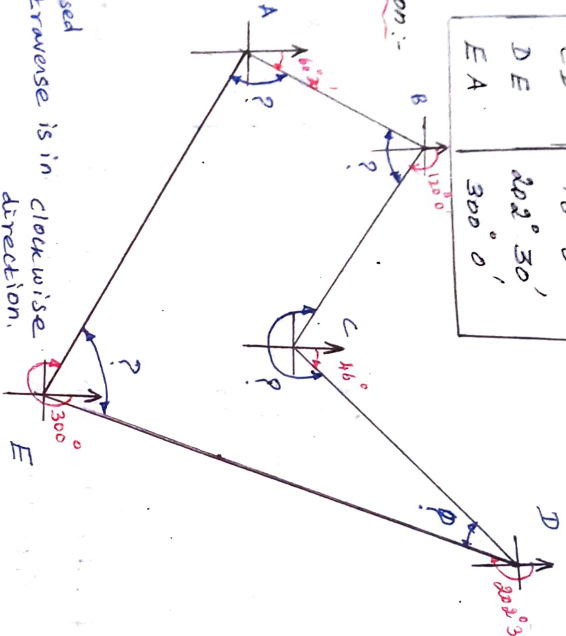 D E 202° 30'
E A 300° 0'
on:-
D
202°3
B
120°0
?
?
C
46°
?
60°30'
A
?
?
300°
E
sed
traverse is in clockwise
direction.